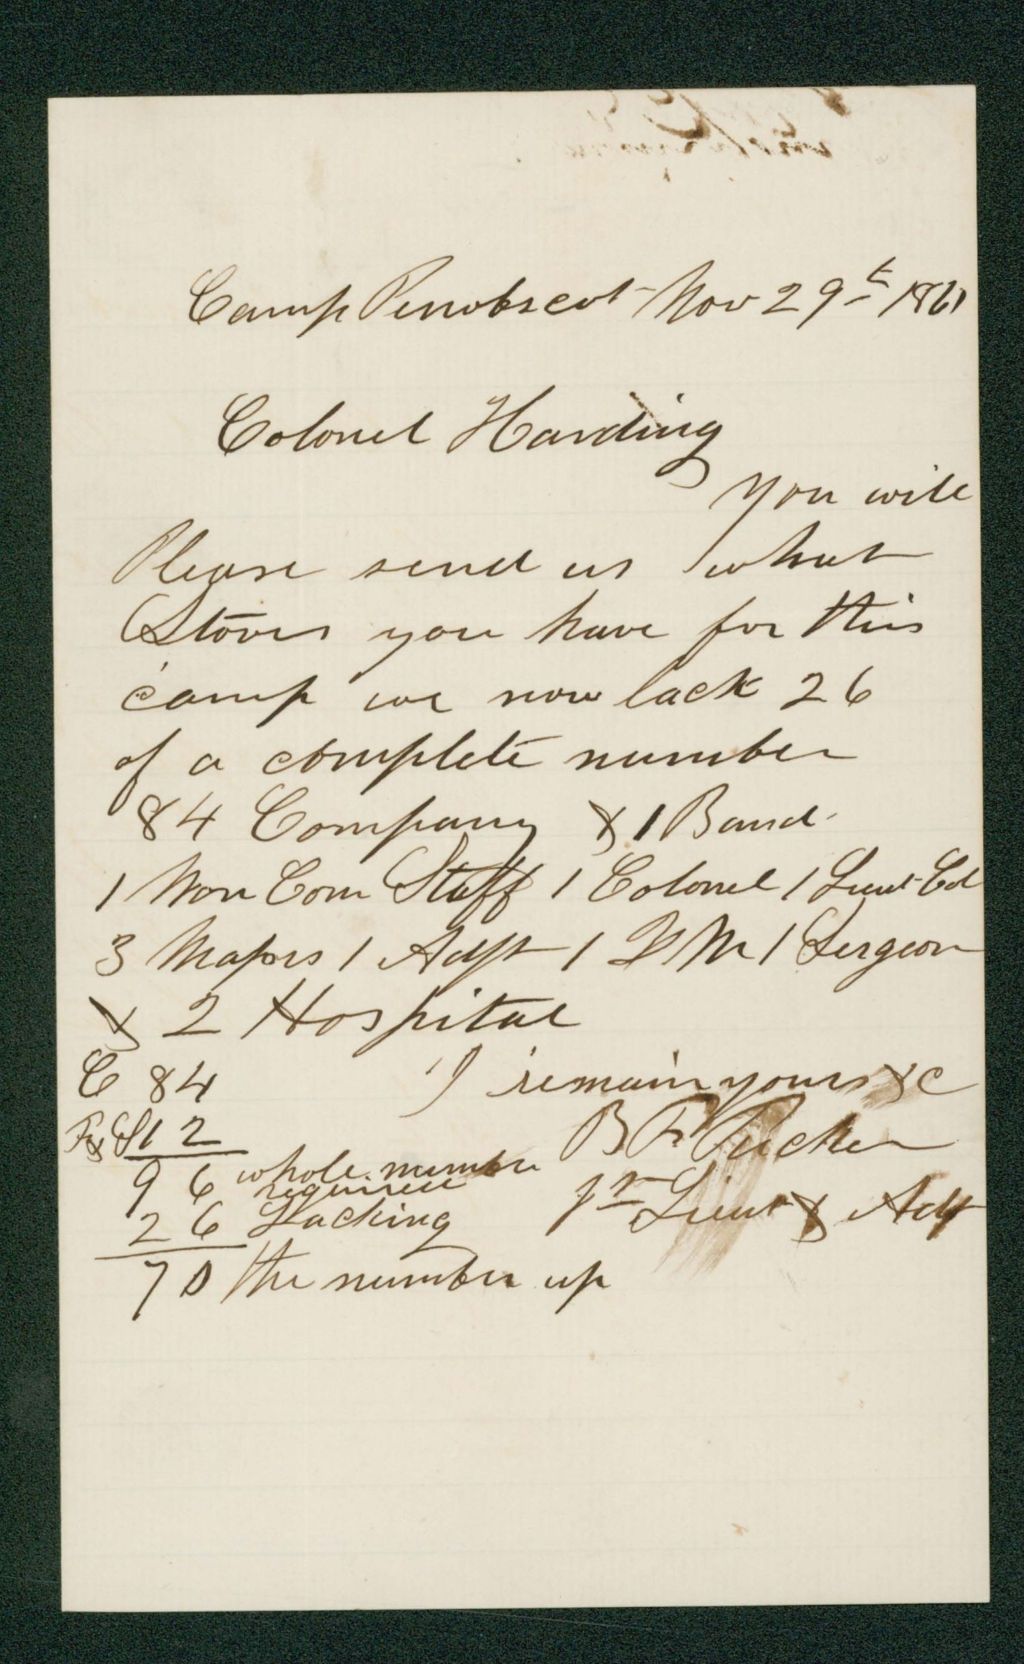 Camp Penobscot Nov 29th 1861
Colonel Harding
You will
Please send us what
Stoves you have for this
camp we now lack 26
of a complete number
84 Company & 1 Band
1 Non Com Staff 1 Colonel 1 Lieut Col
3 Majors 1 Adjt 1 Q M 1 Surgeon
& 2 Hospital
C 84 I remain yours &c
F & S 12 B F Tucker
96 whole number required 1st Lieut & Adjt
26 Lacking
70 the number up